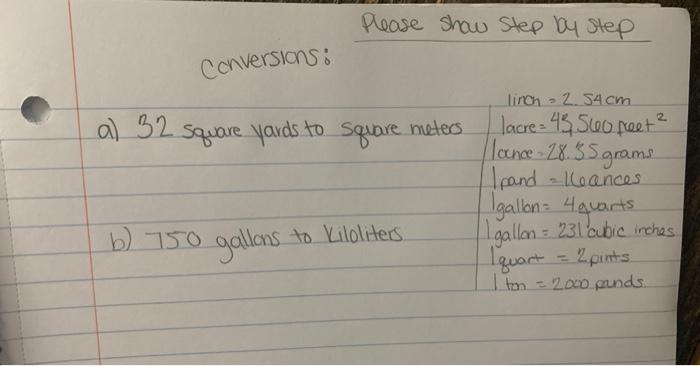 Please show step by step
Conversions:
a) 32 square yards to square meters
b) 750 gallons to kiloliters
1 inch = 2.54cm
1 acre = 43,560 feet²
1 ounce = 28.35 grams
1 pound = 16 ounces
1 gallon = 4 quarts
1 gallon = 231 cubic inches
1 quart = 2 pints
1 ton = 2000 pounds.